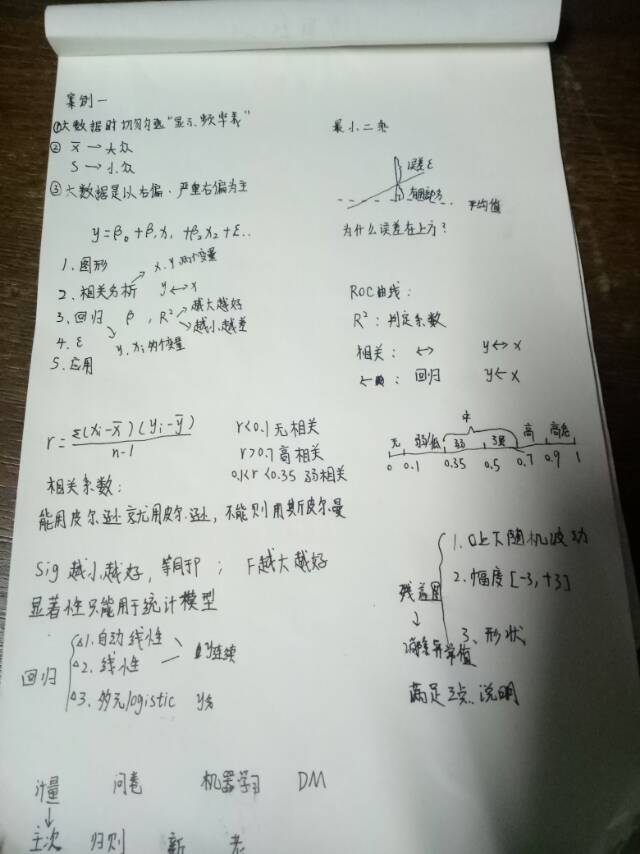 案例一
①大数据时切勿勾选"显示频率表"
② x̄ → 大众
S → 小众
③大数据是以右偏、严重右偏为主
y=β₀+β₁x₁+β₂x₂+ε..
1.图形
x.y两个变量
2.相关分析 y↔x
3.回归 β, R² 越大越好
越小越差
4.ε
y,xi的个变量
5.应用
最小二乘
误差ε
有回归方
平均值
为什么误差在上方?
ROC曲线:
R²:判定系数
相关: ↔ y↔x
← : 回归 y←x
r=Σ(xi-x̄)(yi-ȳ)/n-1
r<0.1无相关
r>0.7高相关
0.1<r<0.35弱相关
相关系数:
能用皮尔逊就用皮尔逊,不能则用斯皮尔曼
中
无 弱/低 弱 高
0 0.1 0.35 0.5 0.7 0.9 1
Sig越小越好,等同于P; F越大越好
显著性只能用于统计模型
回归
1.自动线性
2.线性
y连续
3.多元logistic
残差图
1.0上下随机波动
2.幅度[-3,+3]
3.形状
异常值
满足三点说明
计量 问卷 机器学习 DM
↓
主次 归则 新